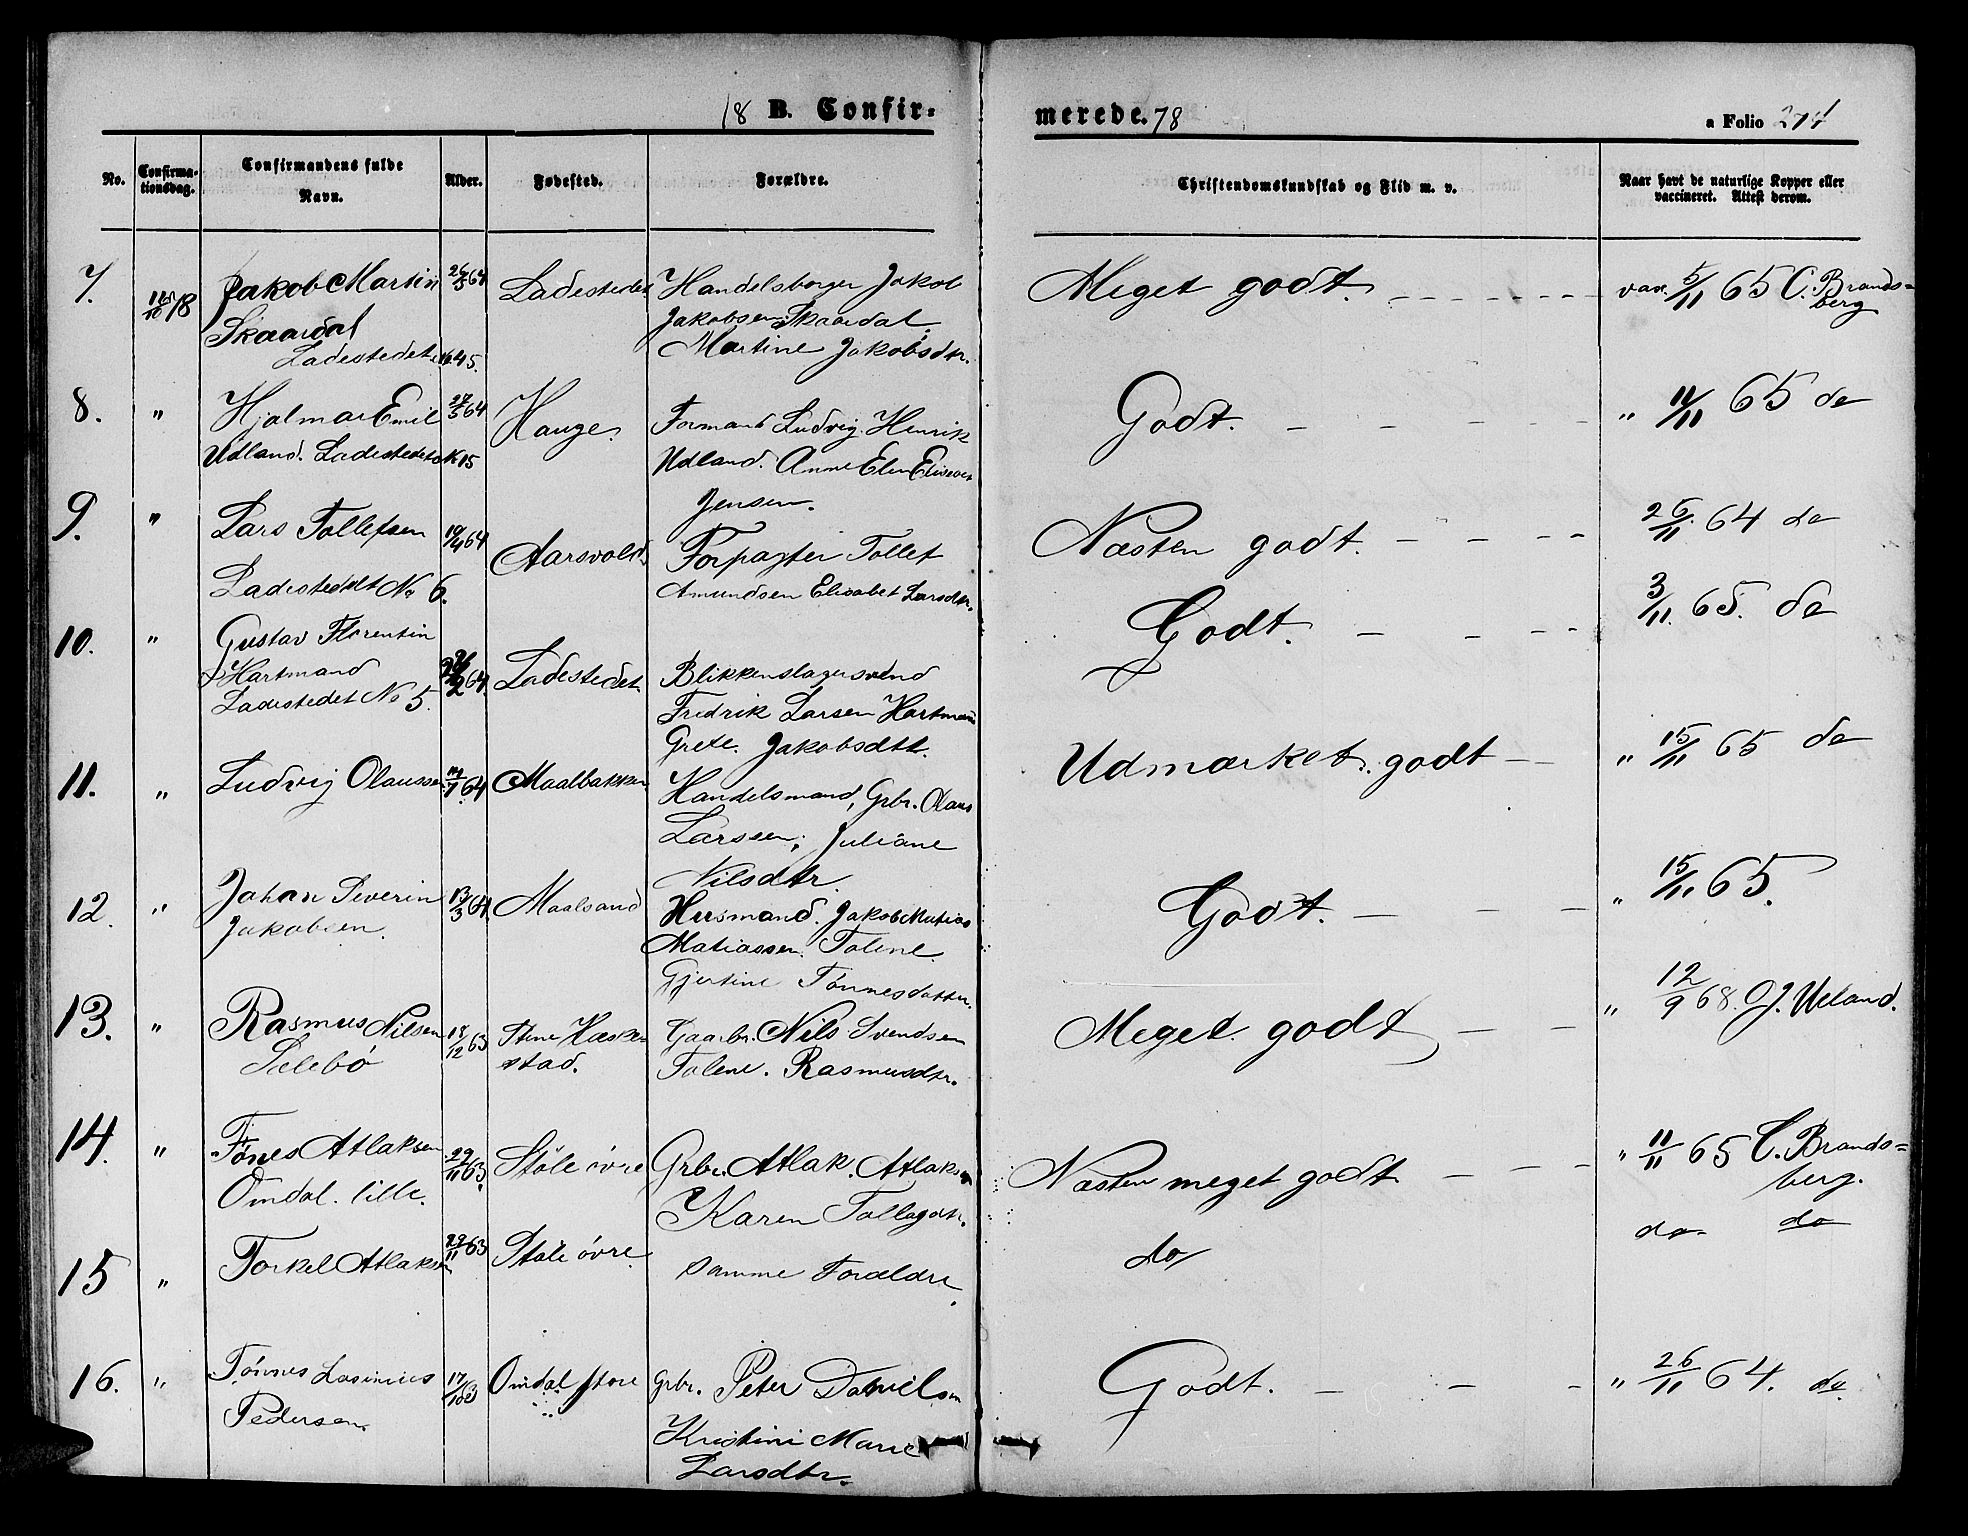 18 B. Confir- merede. 78
a Folio 274
No. Confirma-tionsdag. Confirmandens fulde Navn. Alder. Fødested. Forældre. Christendomskundskab og Flid m. v. Naar havt de naturlige Kopper eller vaccineret. Attest derom.
7. Jakob Martin 64 Ladestedet Handelsborger Jakob Meget godt. vax. 5/11 65 C. Brands-
78 Skaardal Jakobsen Skaardal berg
Ladestedet No 45. Martine Jakobsdtr.
8. " Hjalmar Emil 64 Hauge. Formand Ludvig Henrik Godt. " 11/11 65 do
Udland. Ladestedet No 15 Udland. Anne Elen Elisabet
Jensen.
9. " Lars Tollefsen 19/4 64 Aarsvold. Forpagter Tollef Næsten godt. 26/11 64 do
Ladestedet No 6. Amundsen Elisabet Larsdtr.
10. " Gustav Florentin Godt. 3/11 65. do
Hartmand 64 Ladestedet Blikkenslagersvend
Ladestedet No 5. Fredrik Larsen Hartmann
Grete. Jakobsdtr.
11. " Ludvig Olaussen 64 Maalbakken Handelsmand, Grbr. Olaus Udmærket godt " 15/11 65 do
Larssen, Juliane
Nilsdtr.
12. " Johan Severin 13/3 64 Maalsand Husmand. Jakob Matias Godt. " 15/11 65.
Jakobsen. Matiassen. Tolene.
Gjertine Tønnesdatter.
13. " Rasmus Nilsen 18/12 63 Stene Hæske- Gaarbr. Nils Svendsen Meget godt " 12/9 68. J. Ueland.
Selebø stad. Tolene. Rasmusdtr.
14. " Tønes Atlaksen 29/11 63. Støle øvre Grbr. Atlak. Atlaksen Næsten meget godt " 11/11 65 C. Brands-
Omdal. lille. Karen Tollagdtr. berg.
15 " Torkel Atlaksen 29/11 63 Støle øvre. samme Forældre. do do do
16. " Tønnes Lasinius 17/10 63 Omdal store Grbr. Peter Danielsen Godt. " 26/11 64. do.
Pedersen. Kristine Marie
Larsdtr.